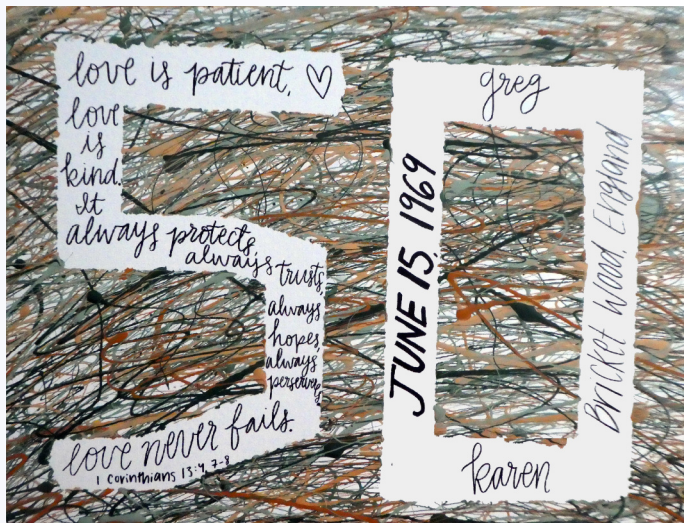 love is patient, ♡
love
is
kind.
It
always protects,
always
trusts,
always
hopes,
always
perserves,
love never fails.
1 Corinthians 13:4, 7-8
greg
JUNE 15, 1969
Bricket Wood, England
karen